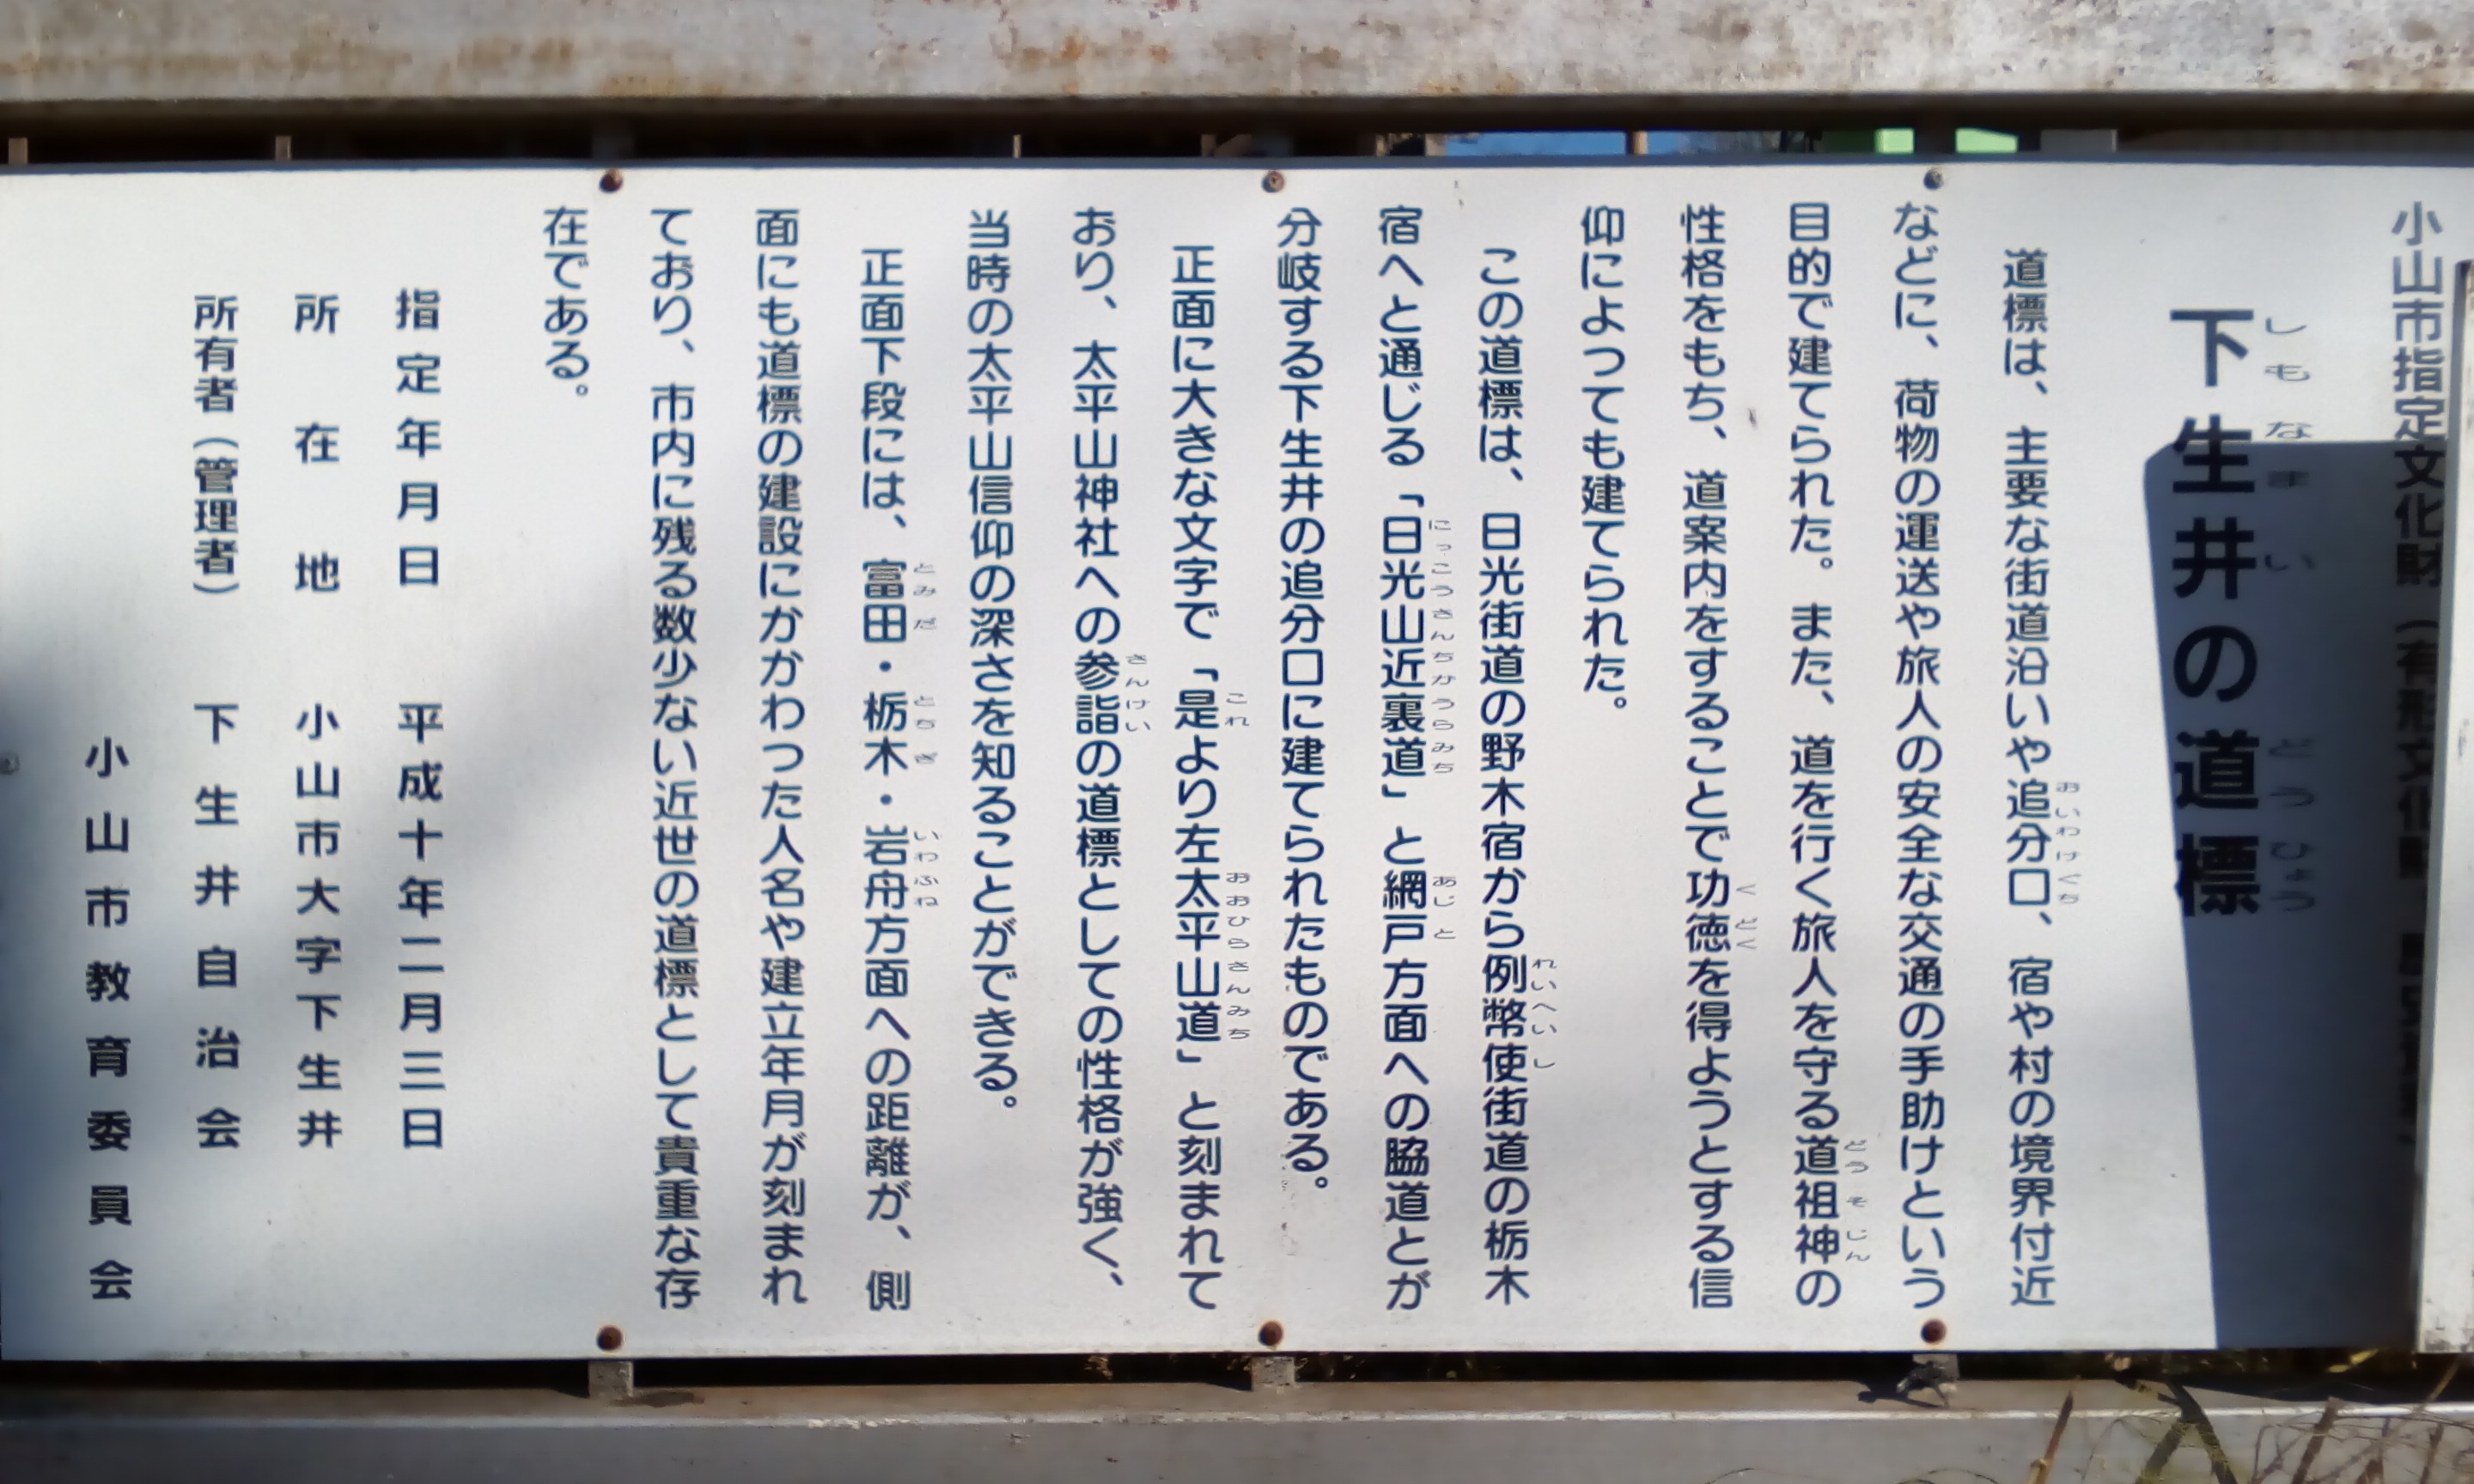 小山市指定文化財（有形文化財
下生井の道標
しもなまい どうひょう
道標は、主要な街道沿いや追分口、宿や村の境界付近
おいわけぐち
などに、荷物の運送や旅人の安全な交通の手助けという
目的で建てられた。また、道を行く旅人を守る道祖神の
どうそじん
性格をもち、道案内をすることで功徳を得ようとする信
くどく
仰によっても建てられた。
この道標は、日光街道の野木宿から例幣使街道の栃木
れいへいし
宿へと通じる「日光山近裏道」と網戸方面への脇道とが
にっこうさんちかうらみち あじと
分岐する下生井の追分口に建てられたものである。
正面に大きな文字で「是より左太平山道」と刻まれて
これ おおひらさんみち
おり、太平山神社への参詣の道標としての性格が強く、
さんけい
当時の太平山信仰の深さを知ることができる。
正面下段には、富田・栃木・岩舟方面への距離が、側
とみだ とちぎ いわふね
面にも道標の建設にかかわった人名や建立年月が刻まれ
ており、市内に残る数少ない近世の道標として貴重な存
在である。
指定年月日 平成十年二月三日
所在地 小山市大字下生井
所有者（管理者） 下生井自治会
小山市教育委員会